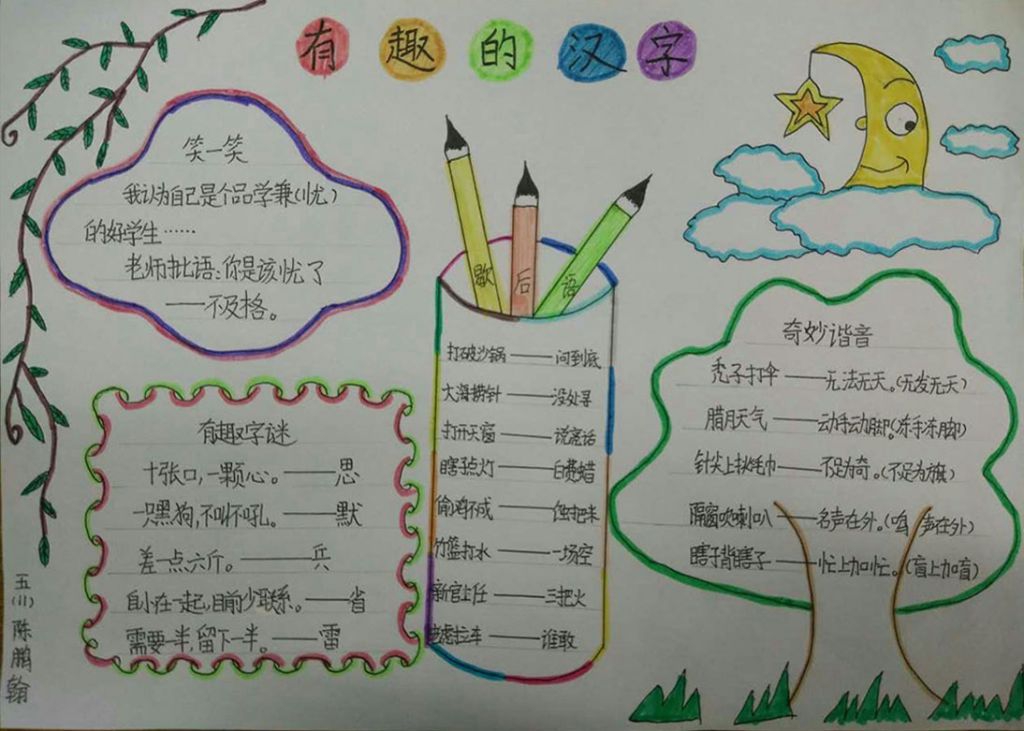 有趣的汉字
笑一笑
我认为自己是个品学兼(忧)
的好学生……
老师批语:你是该忧了
——不及格。
有趣字谜
十张口,一颗心。——思
一只黑狗,不叫不吼。——默
差一点六斤。——兵
自小在一起,目前少联系。——省
需要一半,留下一半。——雷
五(11)陈鹏翰
歇后语
打破沙锅——问到底
大海捞针——没处寻
打开天窗——说亮话
瞎子点灯——白费蜡
偷鸡不成——蚀把米
竹篮打水——一场空
新官上任——三把火
老虎拉车——谁敢
奇妙谐音
秃子打伞——无法无天。(无发无天)
腊月天气——动手动脚。(冻手冻脚)
针尖上挑毛巾——不足为奇。(不足为旗)
隔窗吹喇叭——名声在外。(鸣声在外)
瞎子背瞎子——忙上加忙。(盲上加盲)